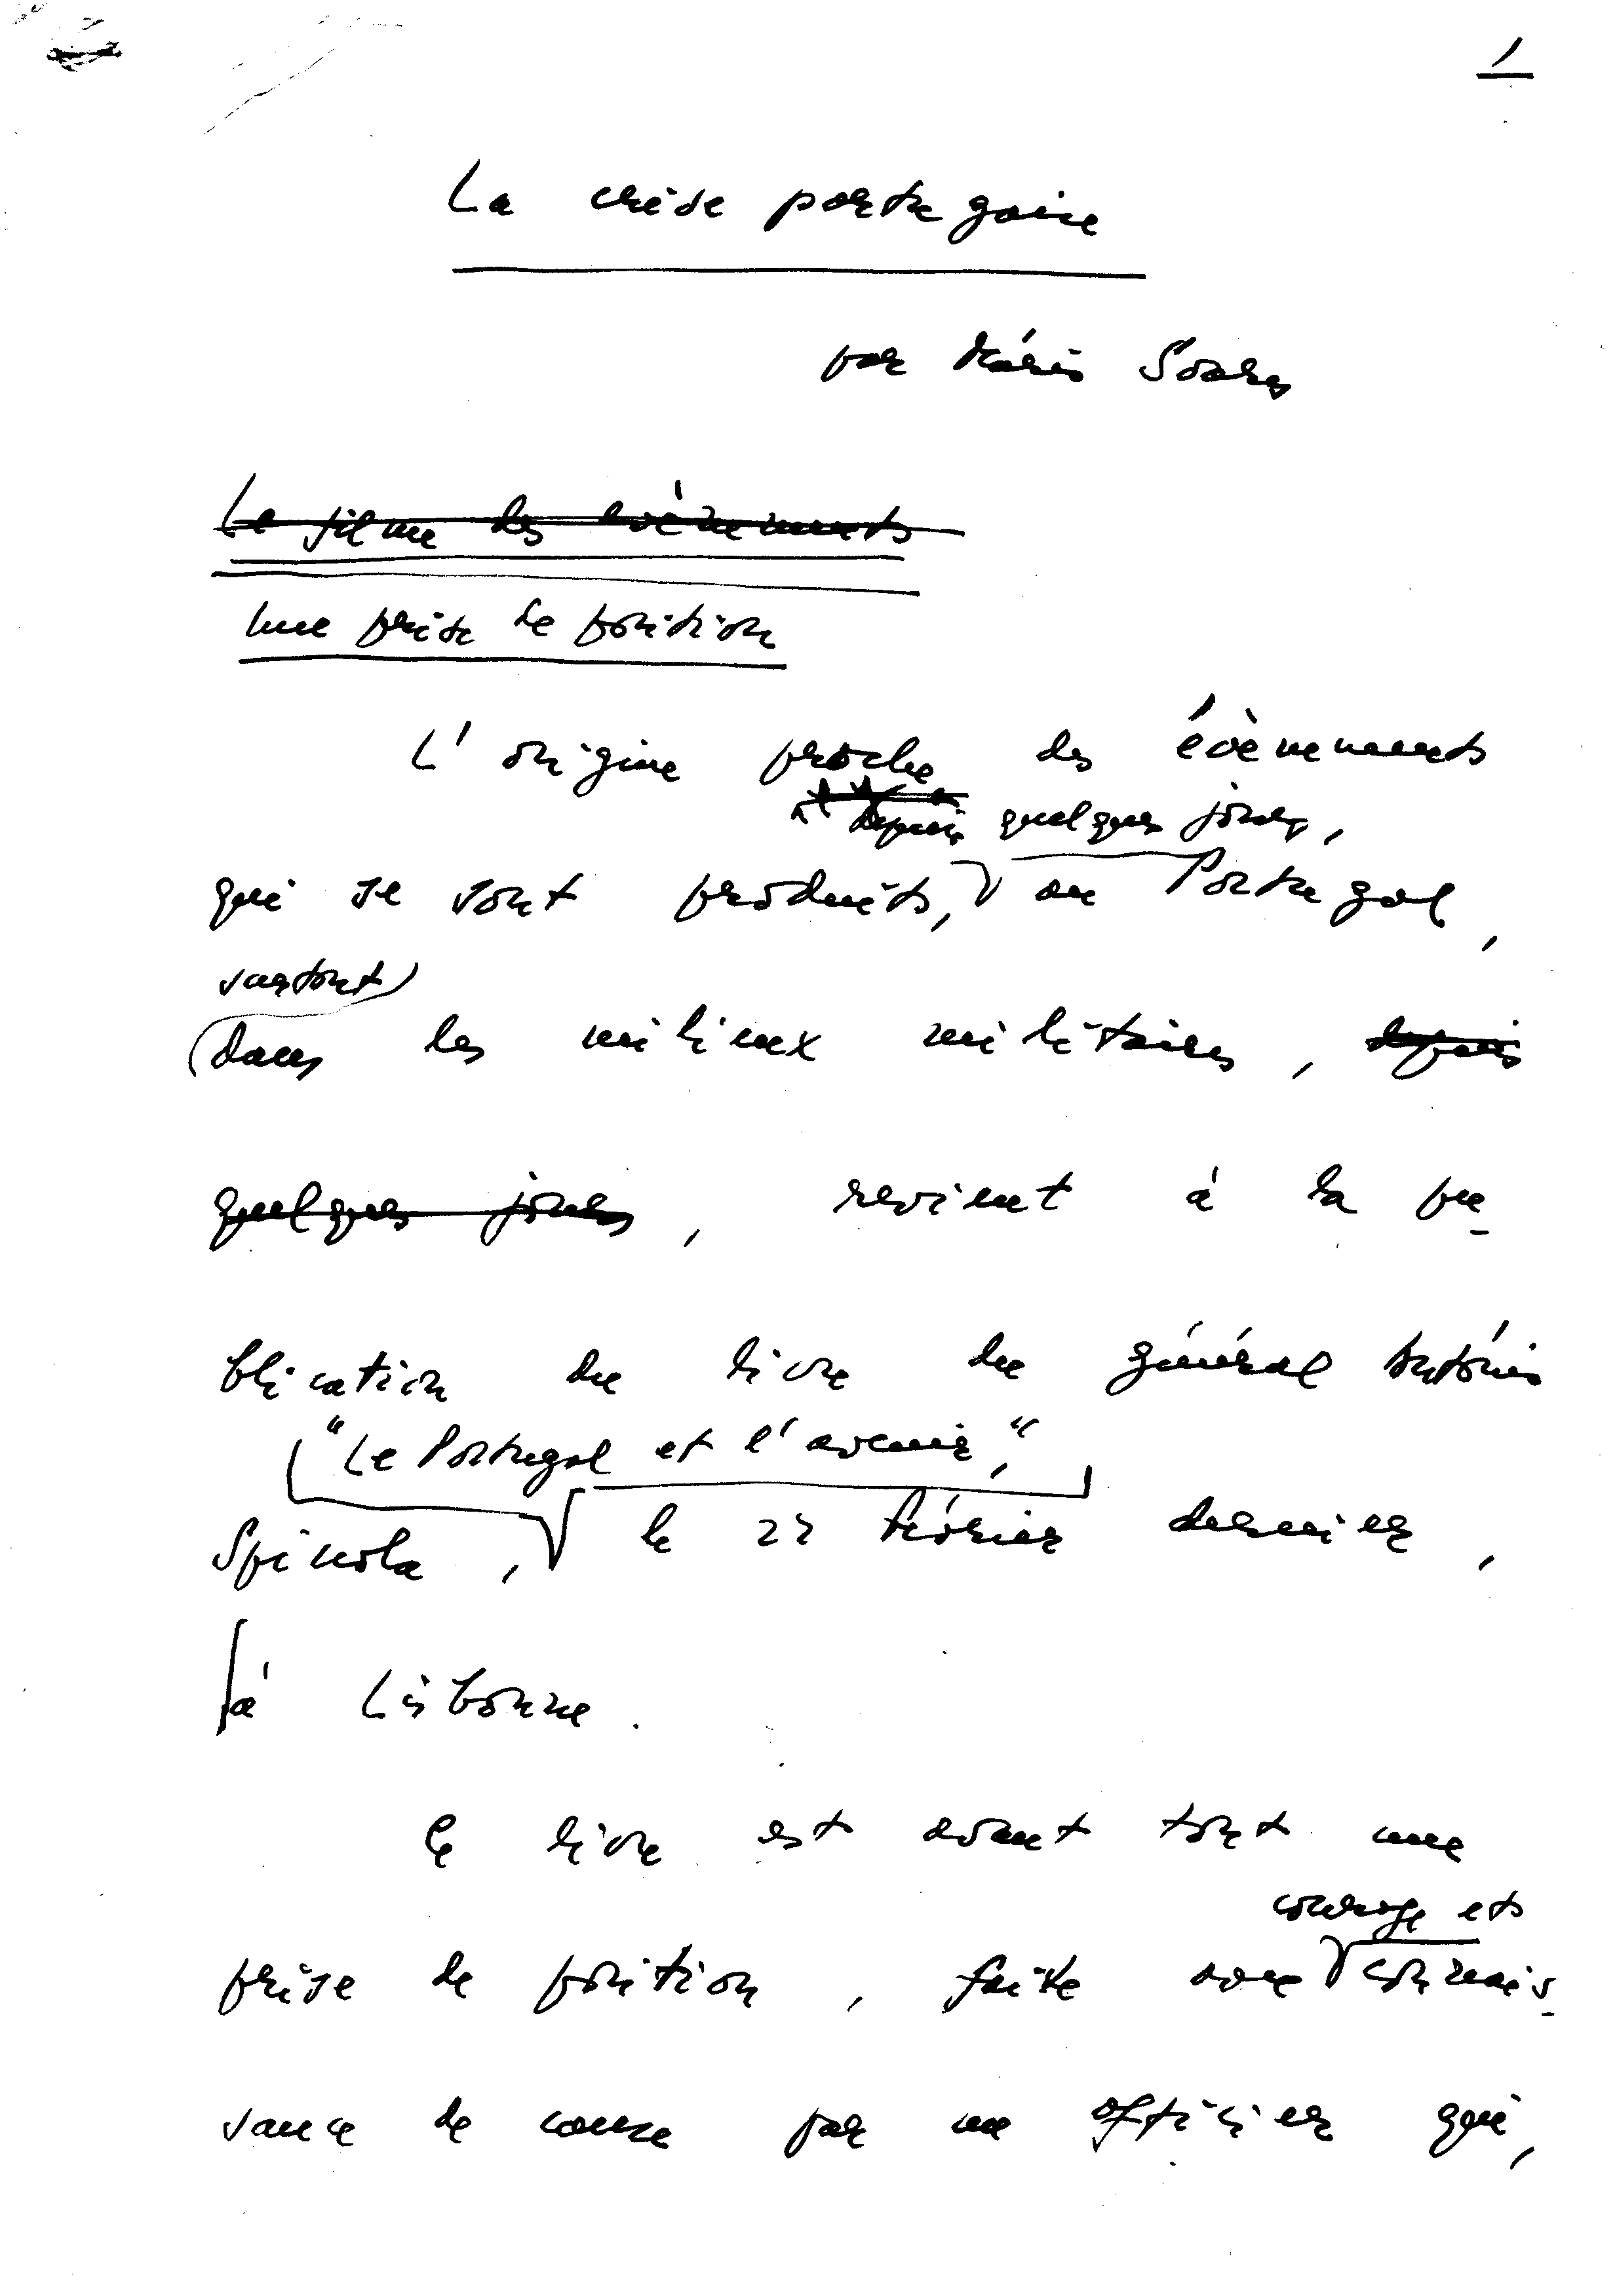 1
La crise portugaise
par Mário Soares
Le filme des evènements
Une prise de position
L'origine proche des évènements
depuis quelques jours,
qui se sont produits, au Portugal,
surtout
dans les milieux militaires, depuis
quelques jours, revient à la pu-
blication du livre du général António
"Le Portugal et l'avenir,"
Spinola, le 22 février dernier,
à Lisbonne.
Ce livre est avant tout une
courage et
prise de position, faite avec connais-
sance de cause par un officier qui,